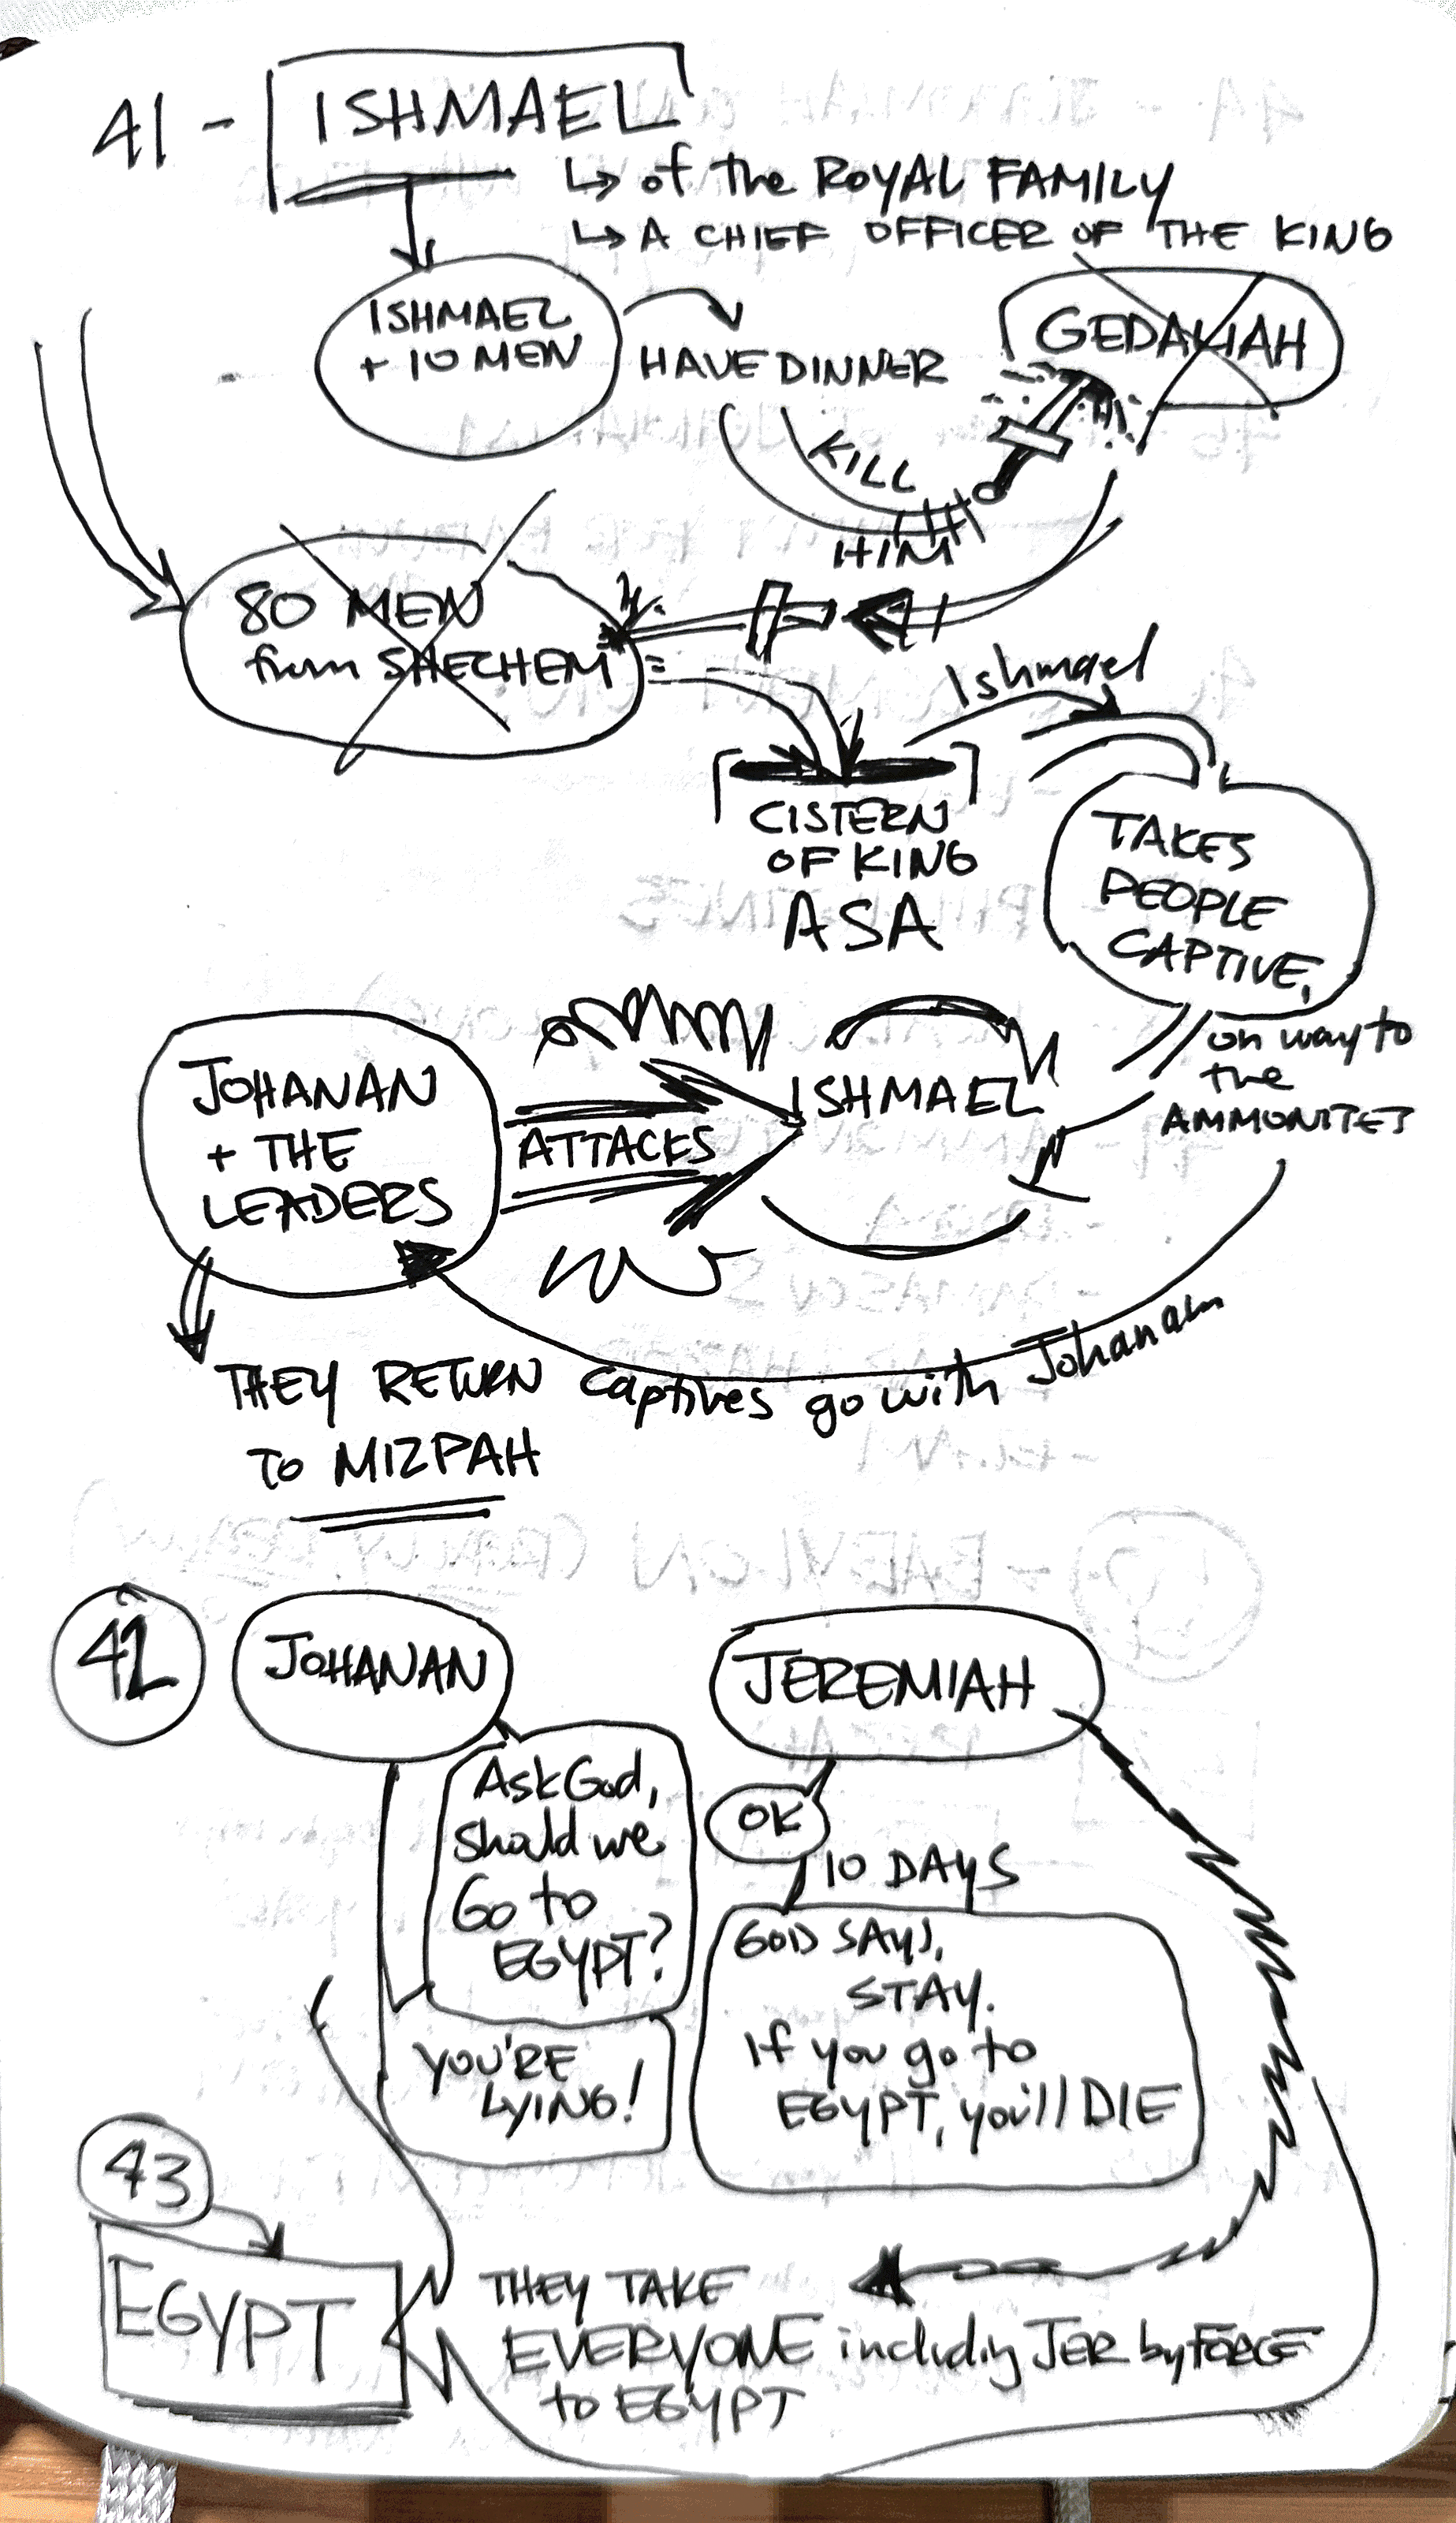 41 - ISHMAEL
↳ of the ROYAL FAMILY
↳ A CHIEF OFFICER OF THE KING
ISHMAEL
+ 10 MEN
HAVE DINNER
GEDALIAH
KILL
HIM
80 MEN
from SHECHEM
Ishmael
CISTERN
OF KING
ASA
TAKES
PEOPLE
CAPTIVE,
on way to
the
AMMONITES
JOHANAN
+ THE
LEADERS
ATTACKS
ISHMAEL
Captives go with Johanan
THEY RETURN
TO MIZPAH
42
JOHANAN
Ask God,
should we
Go to
EGYPT?
YOU'RE
LYING!
JEREMIAH
OK
10 DAYS
GOD SAYS,
STAY.
If you go to
EGYPT, you'll DIE
43
EGYPT
THEY TAKE
EVERYONE including JER by FORCE
to EGYPT